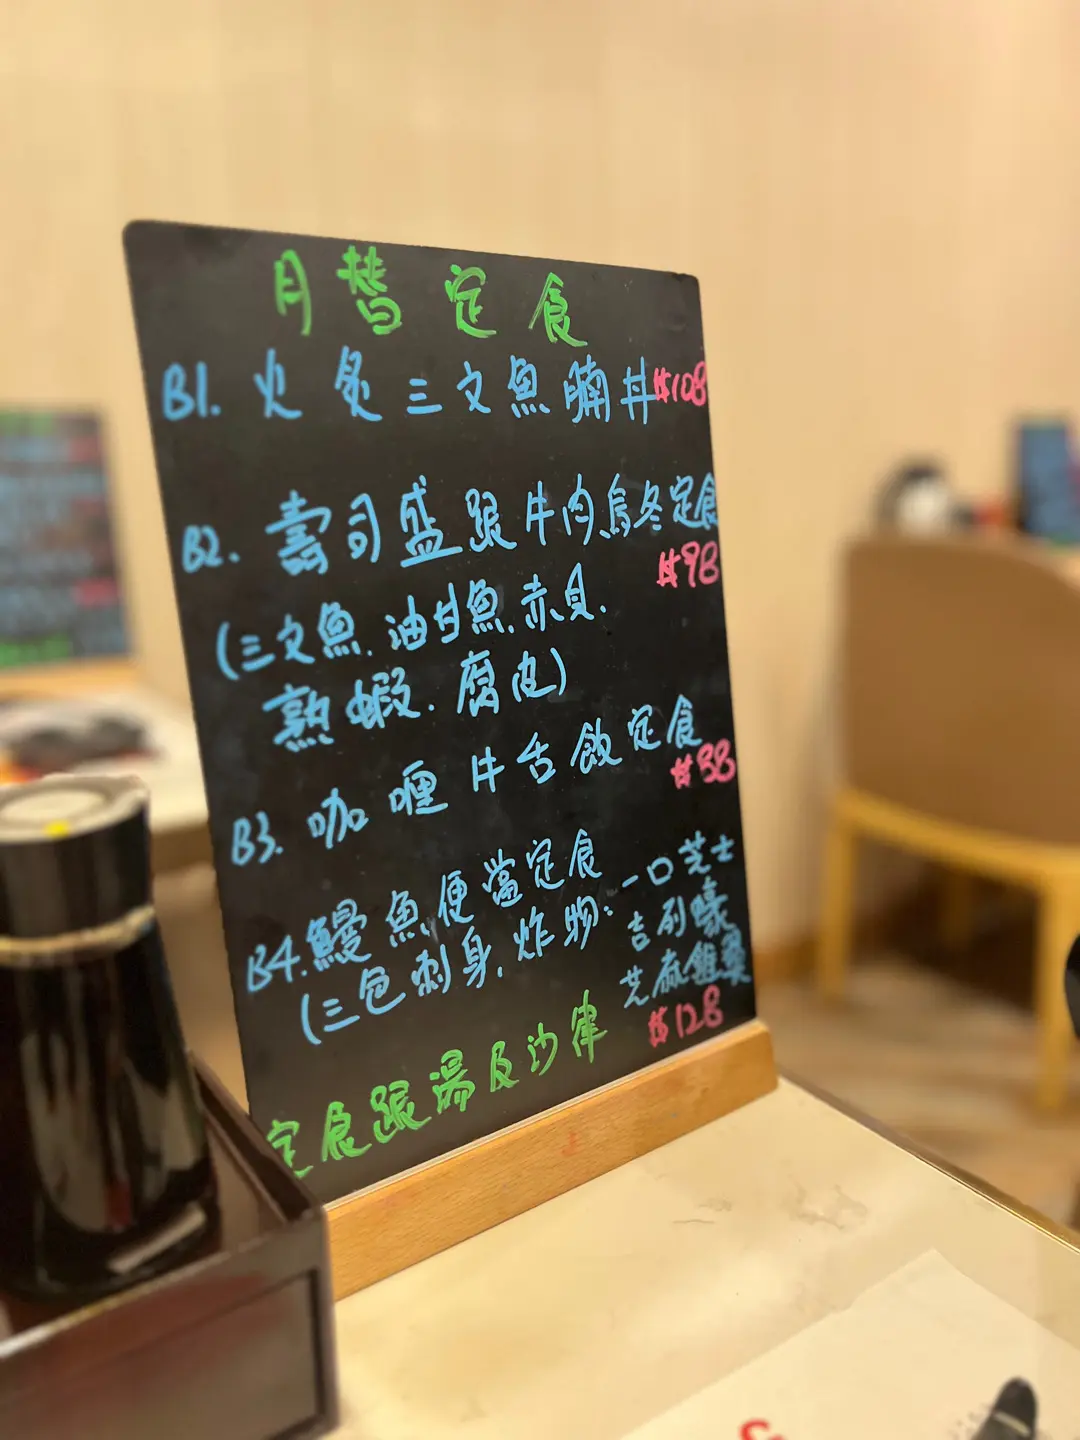 月替定食
B1. 火炙三文魚腩丼 $108
B2. 壽司盛跟牛肉烏冬定食
$98
(三文魚.油甘魚.赤貝.
熟蝦.腐皮)
B3. 咖喱牛舌飯定食
$88
B4. 鰻魚便當定食
(三色刺身.炸物:一口芝士
吉列蠔
芝麻雞翼
$128
定食跟湯及沙律